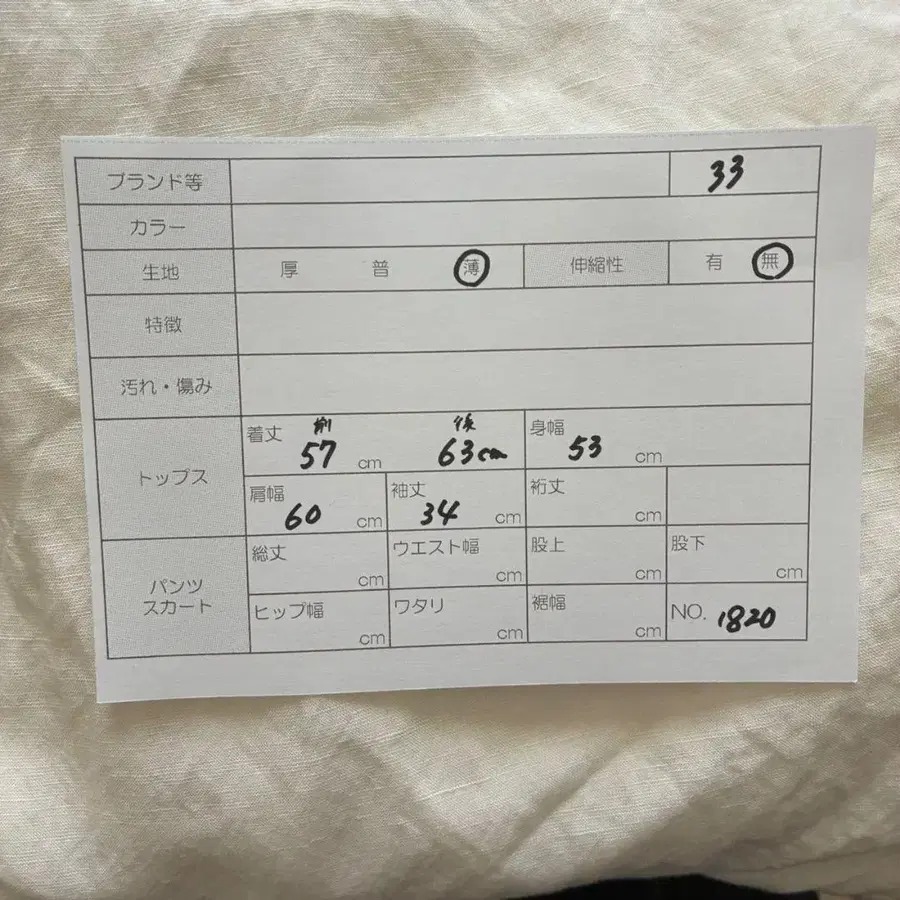 ブランド等 33
カラー
生地 厚 普 薄 伸縮性 有 無
特徴
汚れ・傷み
トップス
着丈 前 57 cm 後 63cm 身幅 53 cm
肩幅 60 cm 袖丈 34 cm 裄丈 cm
パンツ
スカート
総丈 cm ウエスト幅 cm 股上 cm 股下 cm
ヒップ幅 cm ワタリ cm 裾幅 cm NO. 1820